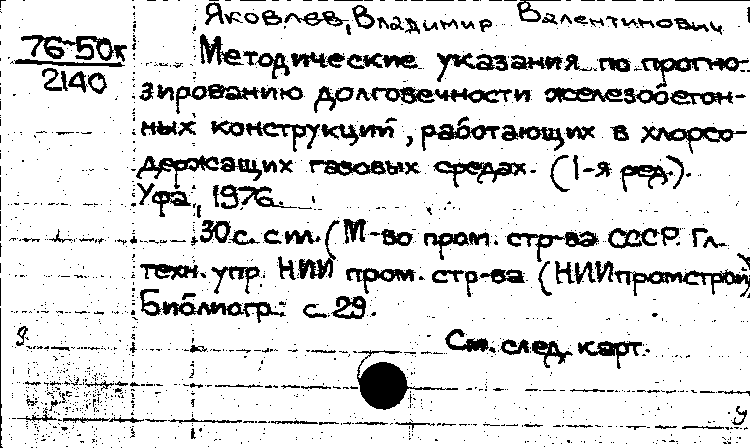 Яковлев, Владимир Валентинович
76-50к
2140
Методические указания по прогно-
зированию долговечности железобетон-
ных конструкций, работающих в хлорсо-
держащих газовых средах. (1-я ред.).
Уфа, 1976.
30 с. с ил. (М-во пром. стр-ва СССР. Гл.
техн. упр. НИИ пром. стр-ва (НИИпромстрой)
Библиогр.: с. 29.
См. след. карт.